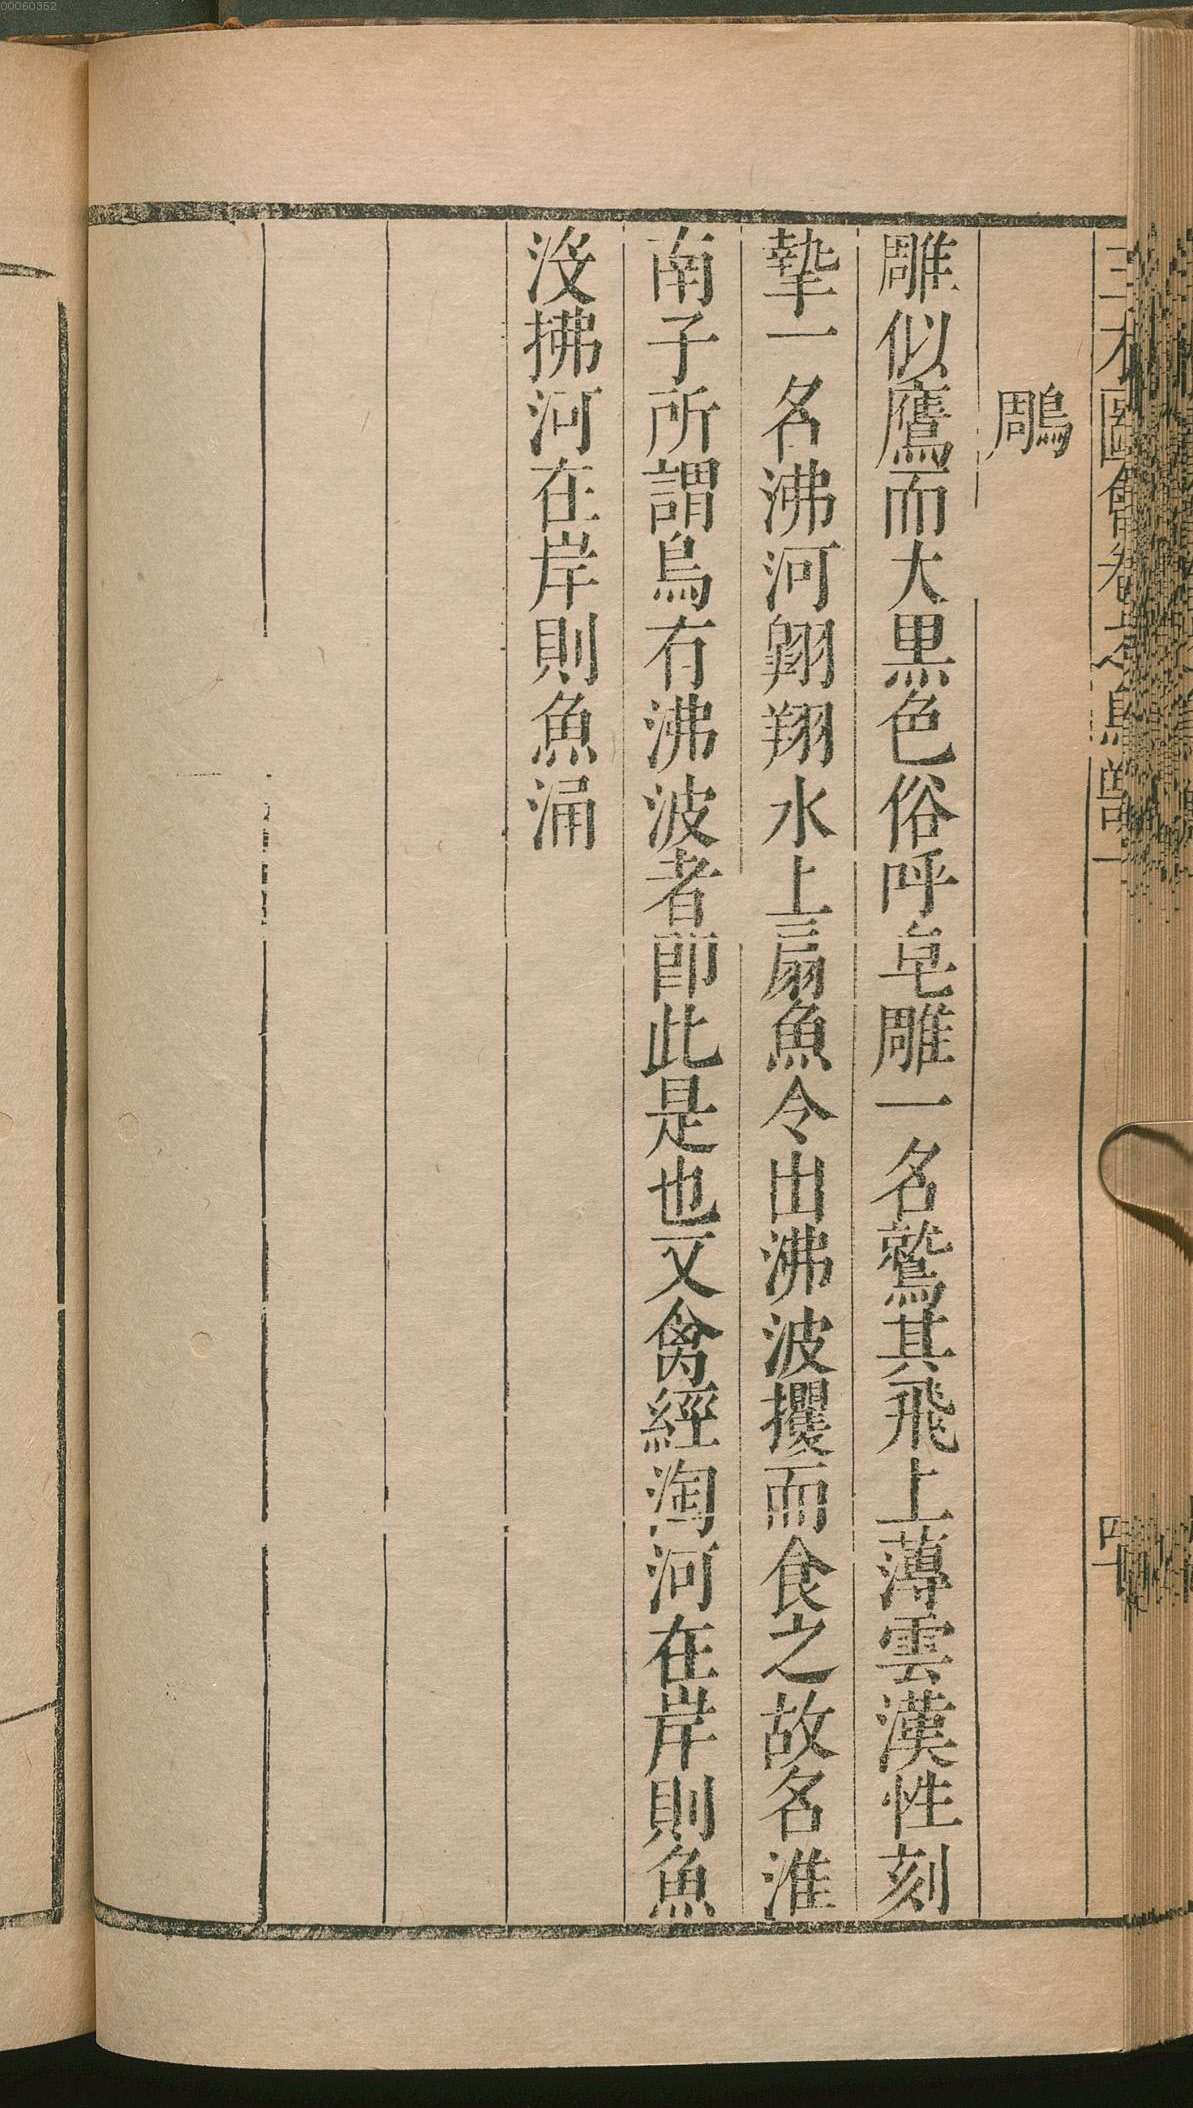 鵰
雕似鷹而大黑色俗呼皂雕一名鷲其飛上薄雲漢性刻
摯一名沸河翱翔水上扇魚令出沸波攫而食之故名淮
南子所謂鳥有沸波者卽此是也又禽經淘河在岸則魚
沒拂河在岸則魚涌
00060352